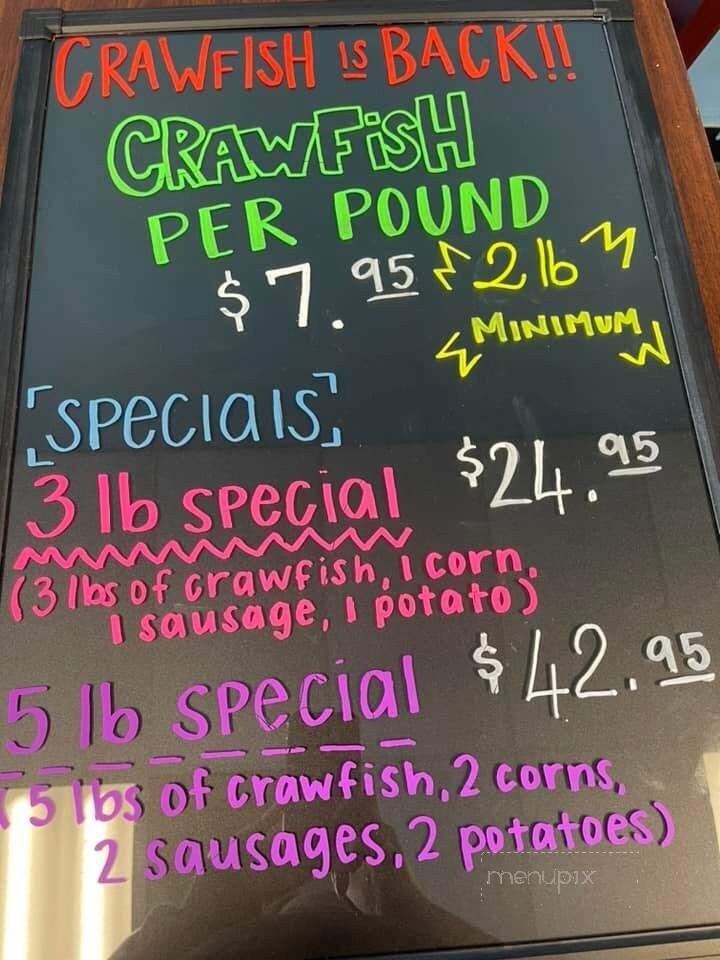 CRAWFISH IS BACK!!
CRAWFISH
PER POUND
$7.95
2 lb
MINIMUM
[SPECIALS]
3 lb special $24.95
(3 lbs of crawfish, 1 corn,
1 sausage, 1 potato)
5 lb special $42.95
(5 lbs of crawfish, 2 corns,
2 sausages, 2 potatoes)
menupix